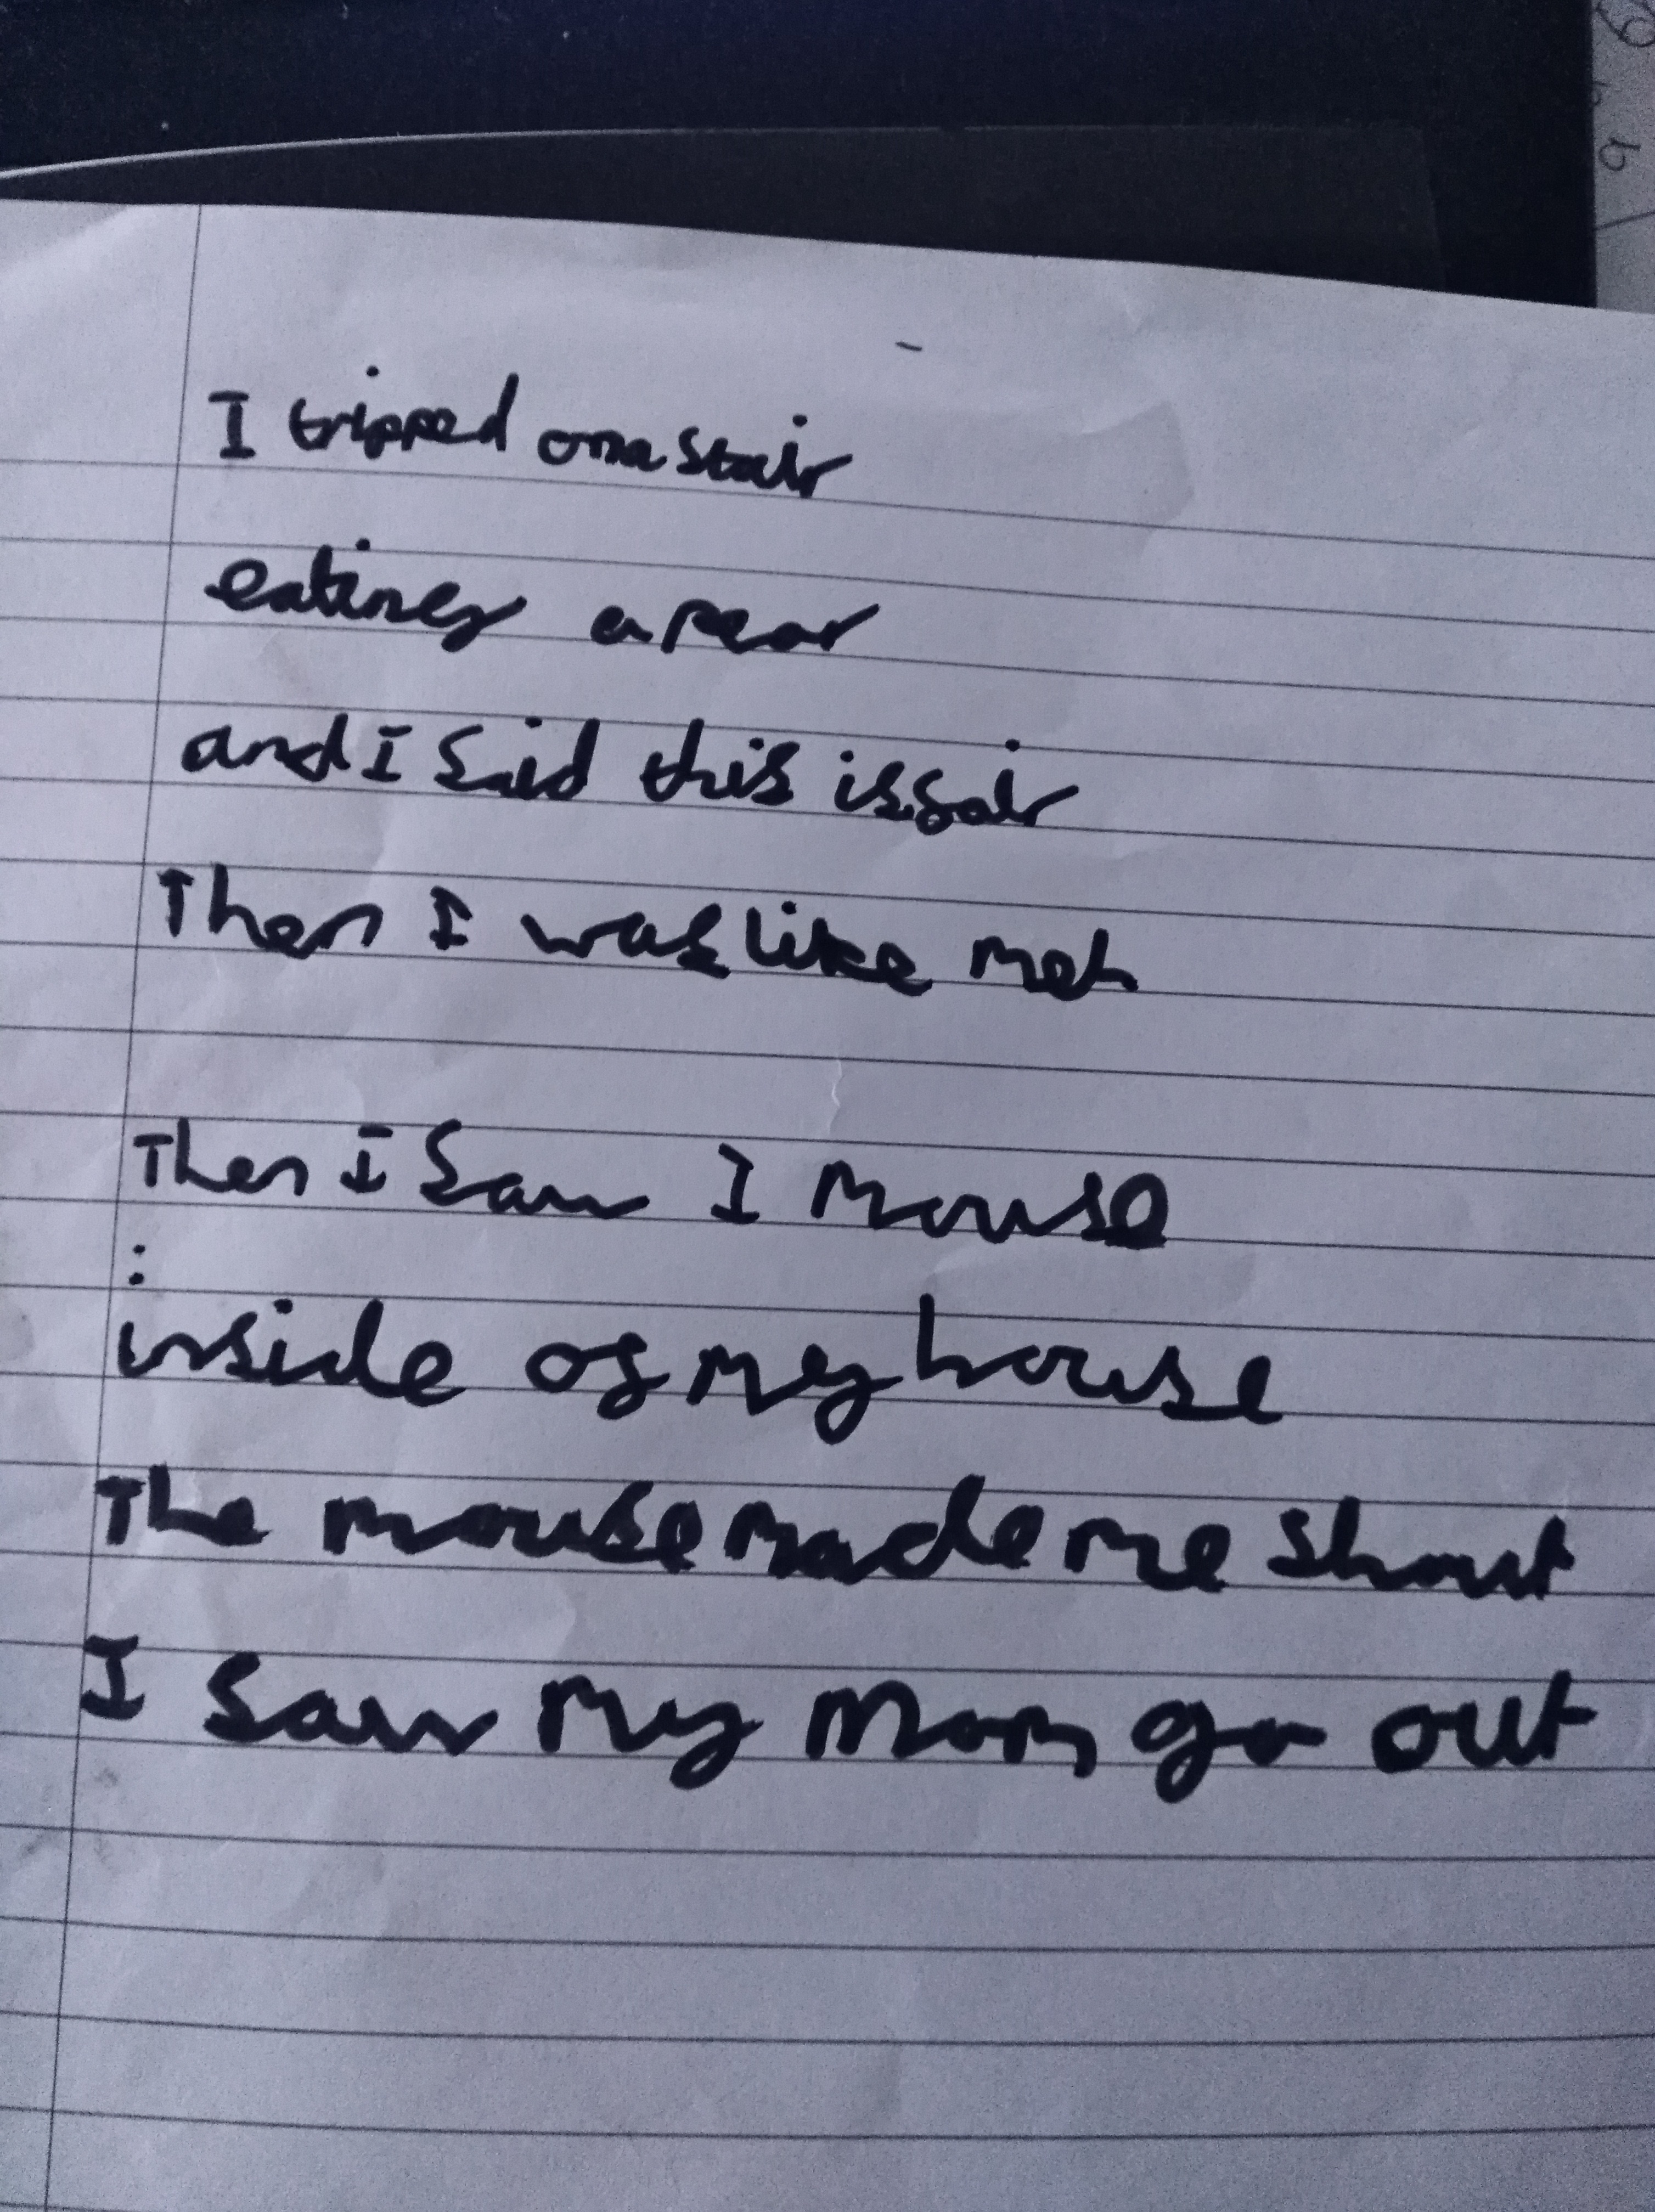 I tripped on a stair
eating a pear
and I said this is fair
Then I was like meh
Then I saw I mouse
inside of my house
The mouse made me shout
I saw my mom go out